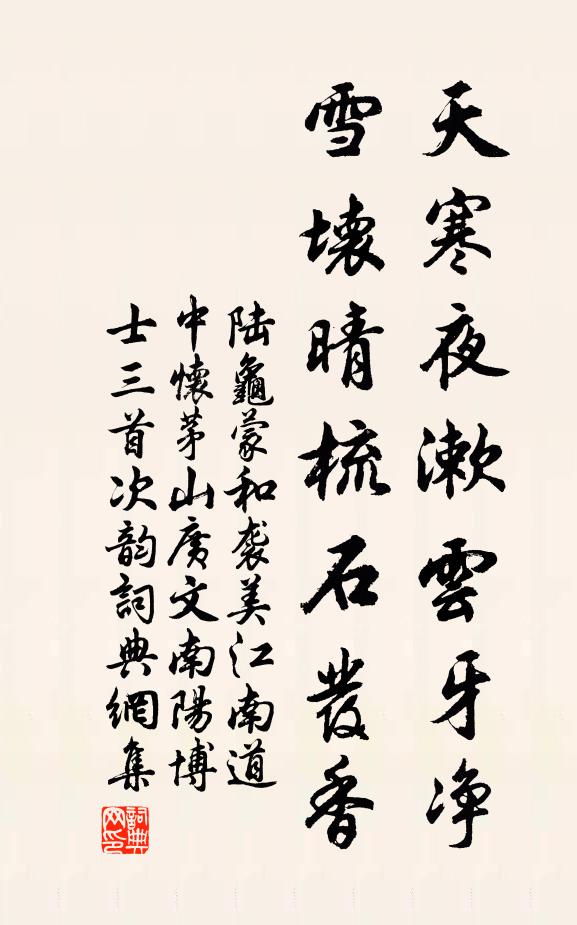 天寒夜漱雲牙淨
雪壞晴梳石髮香
陆龜蒙和袭美江南道
中懷茅山廣文南陽博
士三首次韵詞典網集
詞典
网印